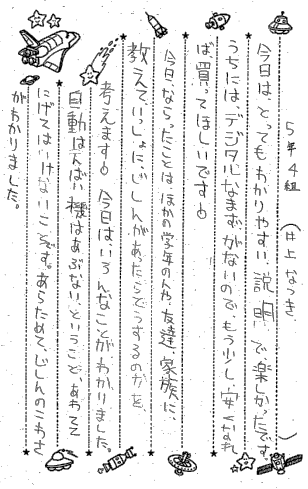 5年4組 (井上なつき)
今日は、とってもわかりやすい説明で楽しかったです
うちには、デジタルなまずがないので、もう少し、安くなれ
ば、買ってほしいです。
今日、ならったことは、ほかの学年の人や、友達、家族に、
教えて、いっしょに、じしんがあったらどうするのかを、
考えます。今日は、いろんなことがわかりました。
自動はんばい機はあぶない、ということ、あわてて
にげてはいけないことです。あらためて、じしんのこわさ
がわかりました。